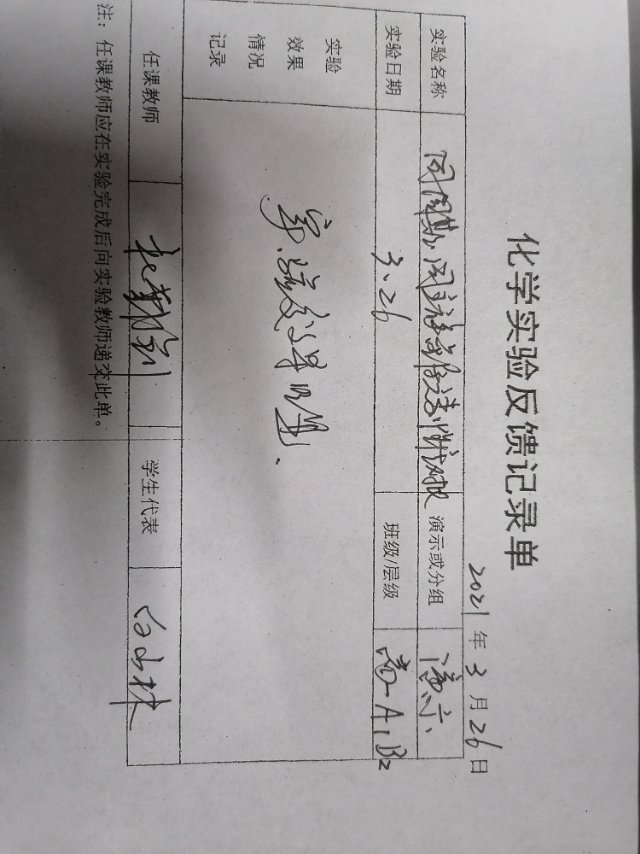 化学实验反馈记录单
2021年3月26日
实验名称 同周期、同主族 性 演示或分组 演示
实验日期 3.26 班级/层级 高一A1B2
实验效果情况记录
实验效果明显.
任课教师 学生代表 白山林
注：任课教师应在实验完成后向实验教师递交此单。